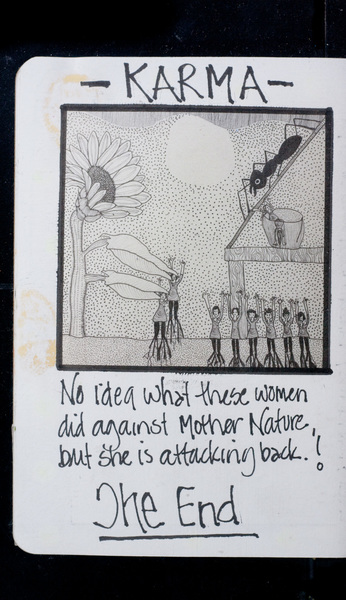 - KARMA -
No idea what these women
did against Mother Nature,
but she is attacking back.!
The End